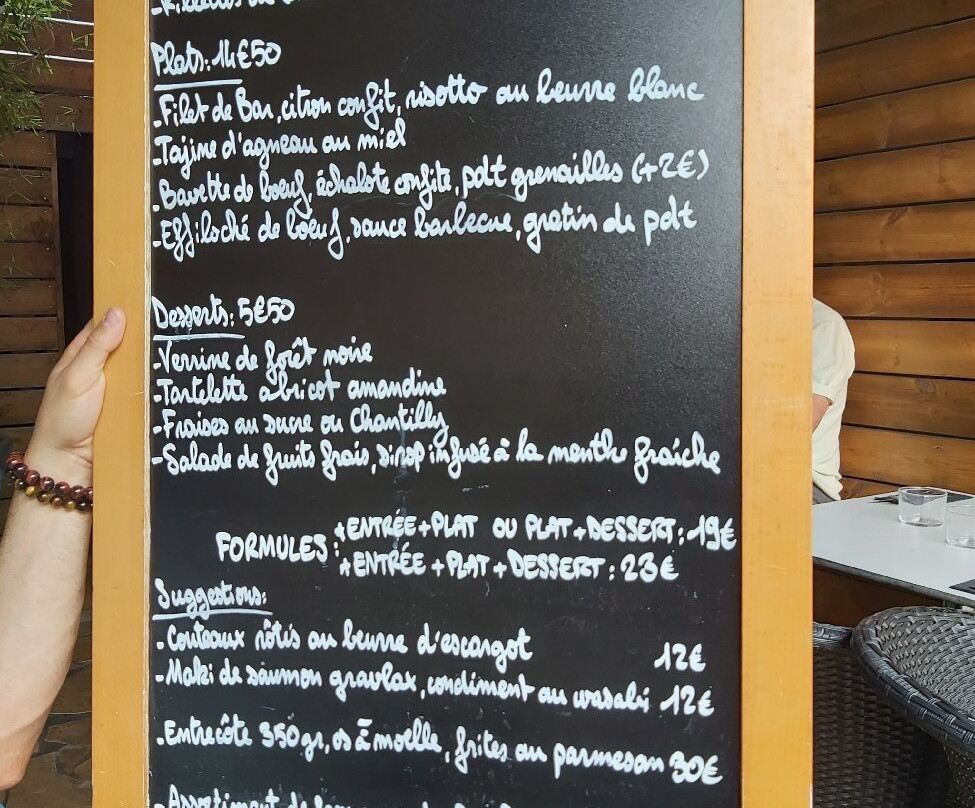 -Rillettes de
Plats: 14€50
-Filet de Bar, citron confit, risotto au beurre blanc
-Tajine d'agneau au miel
-Bavette de boeuf, échalote confite, pdt grenailles (+2€)
-Effiloché de boeuf, sauce barbecue, gratin de pdt
Desserts: 5€50
-Verrine de forêt noire
-Tartelette abricot amandine
-Fraises au sucre ou Chantilly
-Salade de fruits frais, sirop infusé à la menthe fraîche
FORMULES: *ENTRÉE+PLAT OU PLAT+DESSERT: 19€
*ENTRÉE+PLAT+DESSERT: 23€
Suggestions:
-Couteaux rôtis au beurre d'escargot 12€
-Maki de saumon gravlax, condiment au wasabi 12€
-Entrecôte 350gr, os à moelle, frites au parmesan 30€
-Assortiment de